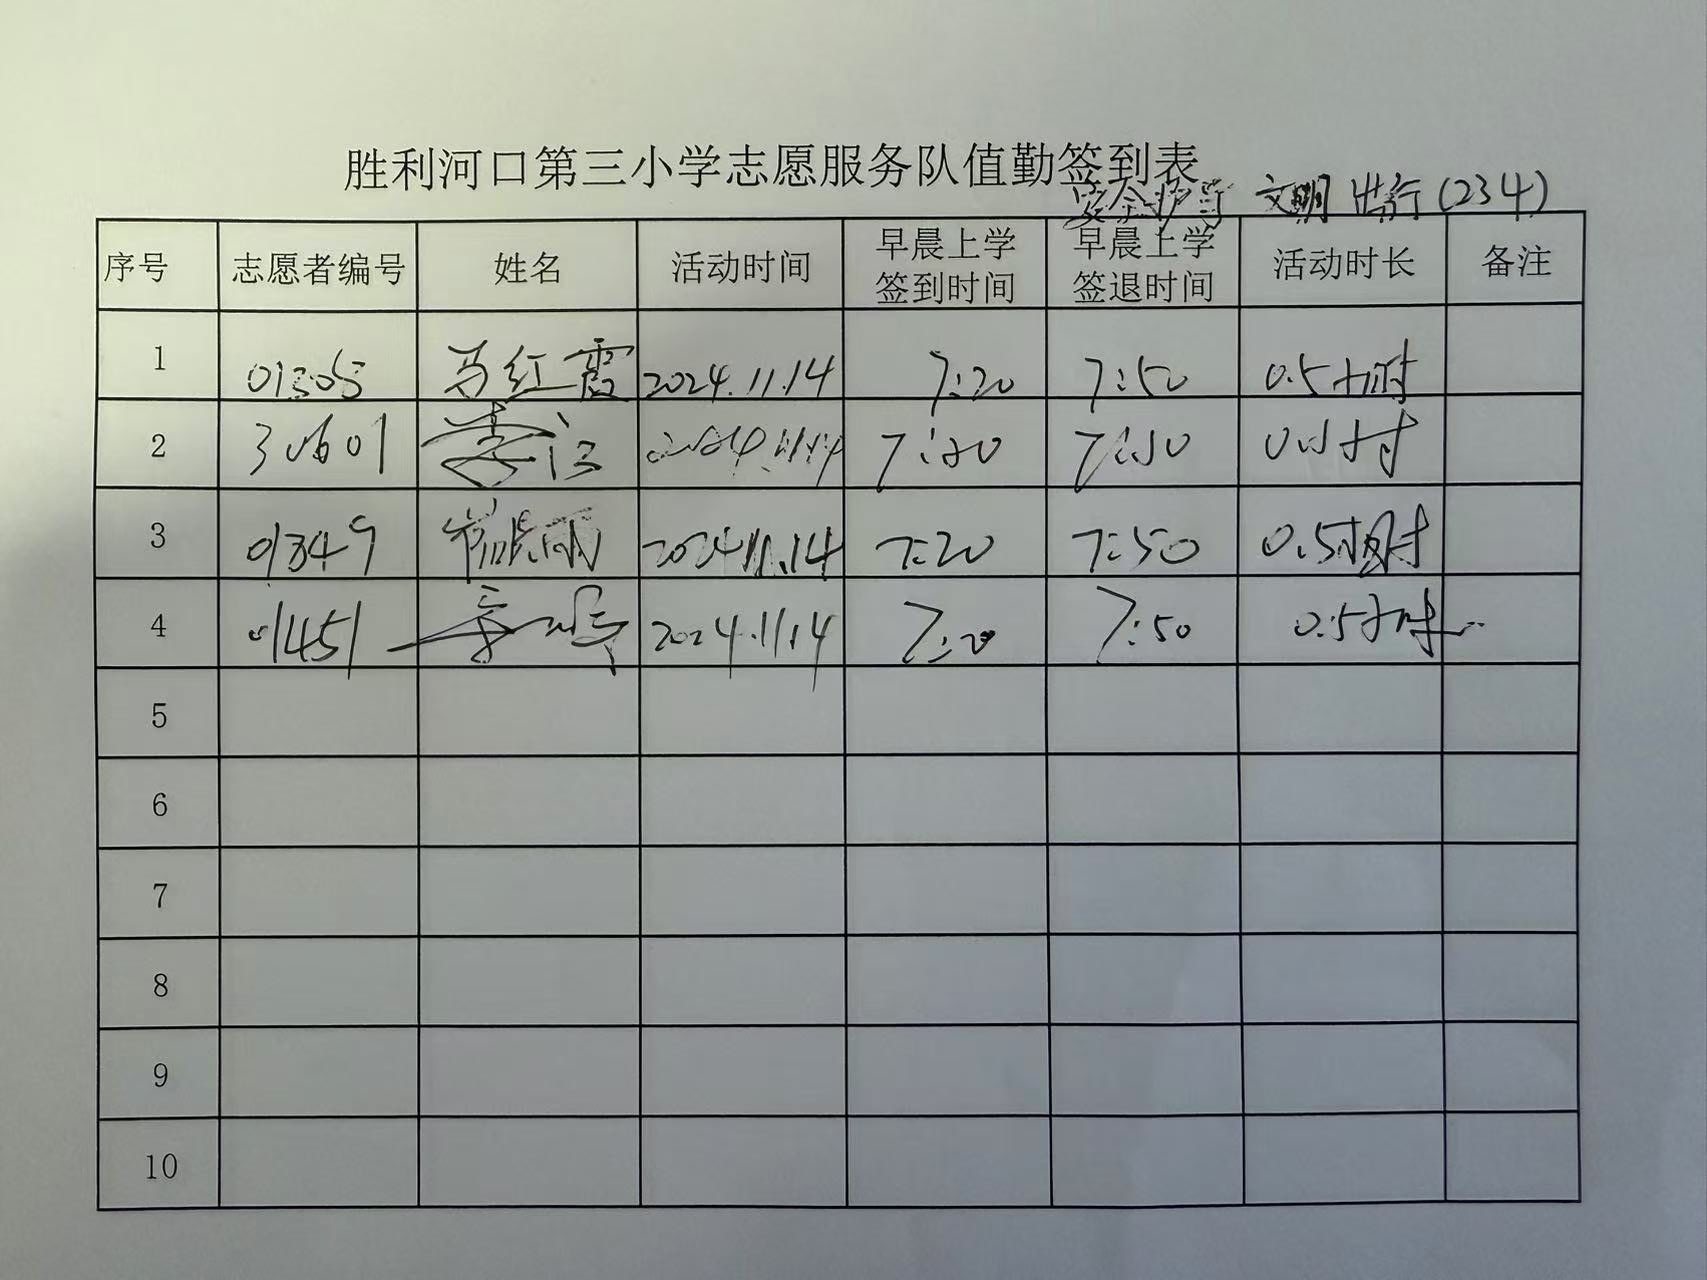 胜利河口第三小学志愿服务队值勤签到表
安全护学 文明出行(234)
序号 志愿者编号 姓名 活动时间 早晨上学签到时间 早晨上学签退时间 活动时长 备注
1 01305 马红霞 2024.11.14 7:20 7:50 0.5小时
2 30601 李江 2024.11.14 7:20 7:50
3 01349 2024.11.14 7:20 7:50 0.5小时
4 01451 2024.11.14 7:20 7:50 0.5小时
5
6
7
8
9
10